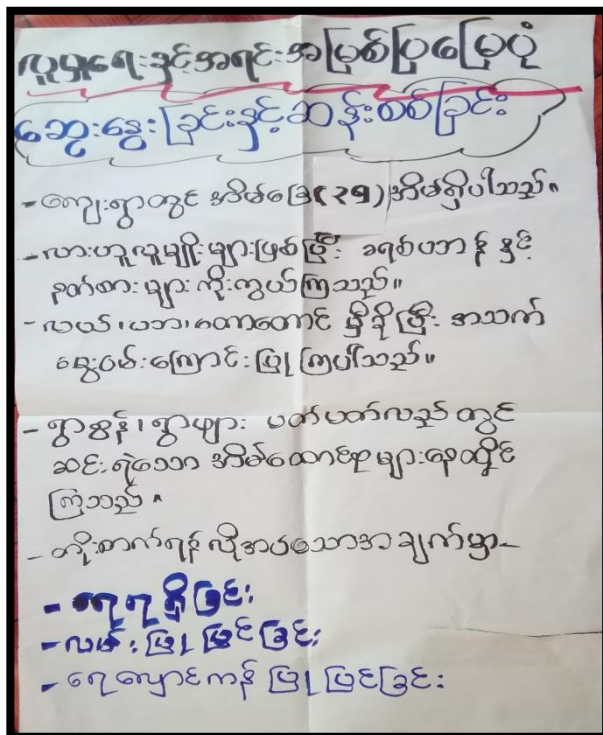 လူမှုရေးနှင့်အရင်းအမြစ်ပြမြေပုံ
ဆွေးနွေးခြင်းနှင့်ဆန်းစစ်ခြင်း
- ကျေးရွာတွင် အိမ်ခြေ(၃၅)အိမ်ရှိပါသည်။
- လားဟူလူမျိုးများဖြစ်ပြီး ခရစ်ယာန် နှင့်
နတ်စား များ ကိုးကွယ်ကြသည်။
- လယ်၊ယာ၊တောတောင် မှီခိုပြီး အသက်
မွေးဝမ်းကြောင်း ပြု ကြပါသည်။
- ရွာစွန်၊ရွာဖျား ပတ်ပတ်လည်တွင်
ဆင်းရဲသော အိမ်ထောင်စုများနေထိုင်
ကြသည်။
- တိုးတက်ရန် လိုအပ်သောအချက်မှာ-
- ရေရရှိခြင်း
- လမ်းပြုပြင်ခြင်း
- ရေလှောင်ကန် ပြုပြင်ခြင်း